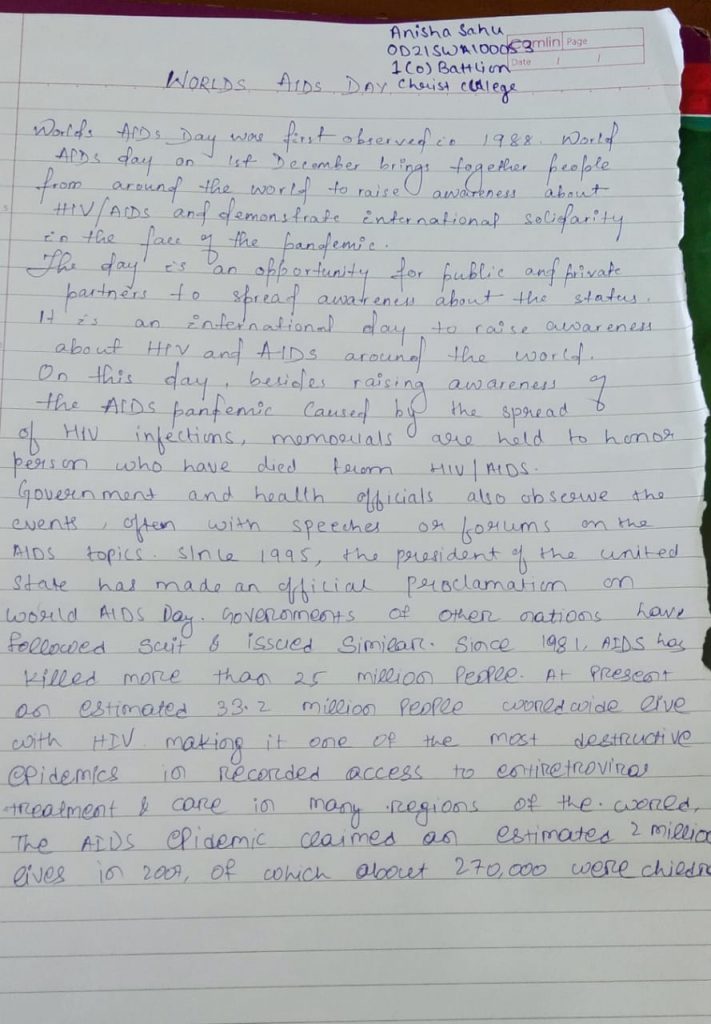 Anisha Sahu
OD21SWA100053
camlin Page
1(O) Battlion
Date / /
WORLDS AIDS DAY Christ college
Worlds AIDs Day was first observed in 1988. World
AIDs day on 1st December brings together people
from around the world to raise awareness about
HIV/AIDs and demonstrate international solidarity
in the face of the pandemic.
The day is an opportunity for public and private
partners to spread awareness about the status.
It is an international day to raise awareness
about HIV and AIDs around the world.
On this day, besides raising awareness of
the AIDs pandemic caused by the spread
of HIV infections, memorials are held to honor
person who have died from HIV/AIDS.
Government and health officials also observe the
events, often with speeches or forums on the
AIDS topics. Since 1995, the president of the united
state has made an official proclamation on
world AIDS Day. Governments of other nations have
followed suit & issued similar. Since 1981, AIDS has
killed more than 25 million people. At present
an estimated 33.2 million people worldwide live
with HIV making it one of the most destructive
epidemics in recorded access to entiretroviras
treatment & care in many regions of the. world,
The AIDS epidemic claimed an estimated 2 millio
lives in 2007, of which about 270,000 were childr